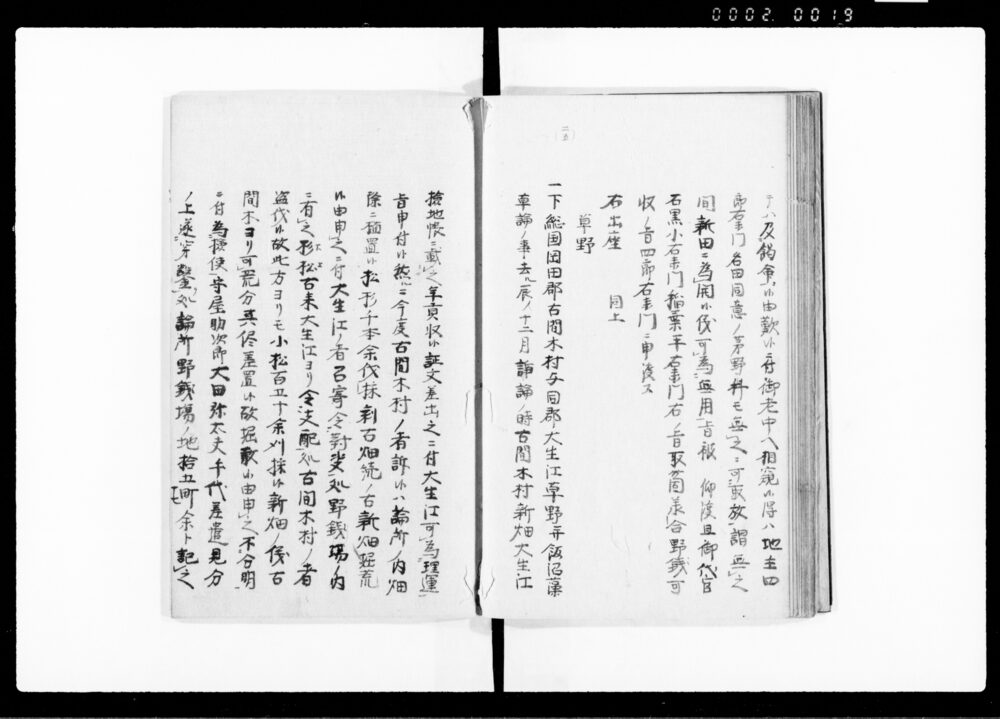 0002.0019
(二五)
テハ及餲命ニ候由歎候ニ付御老中ヘ相窺候得ハ地主四
郎右衛門名田同意ノ茅野料モ無之ニ可取放謂無之
間新田ニ為開候儀可為無用旨被　仰渡且御代官
石黒小右衛門稲葉平右衛門右ノ旨取箇萩合野銭可
収ノ旨四郎右衛門ニ申渡ス
右出座　同上
草野
一下総国岡田郡古間木村与同郡大生江草野并飯沼藻
草論ノ事去ル辰ノ十二月諍論ノ時古間木村新畑大生江
検地帳ニ載之年貢収候証文差出之ニ付大生江可為理運
旨申付候然ニ今度古間木村ノ者訴候ハ論所ノ内畑
際ニ植置候松杉千本余伐採剰石畑続ノ古新畑掘荒
候由申之ニ付大生江ノ者召寄令対決処野銭場ノ内
ニ有之杉松古来大生江ヨリ令支配処古間木村ノ者
盗伐候故此方ヨリモ小松百五十余刈採候新畑ノ儀古
間木ヨリ可荒分其侭差置候故掘散候由申之不分明
ニ付為検使守屋助次郎大田弥太夫手代差遣見分
ノ上遂穿鑿処論所野銭場ノ地拾五町余ト記之